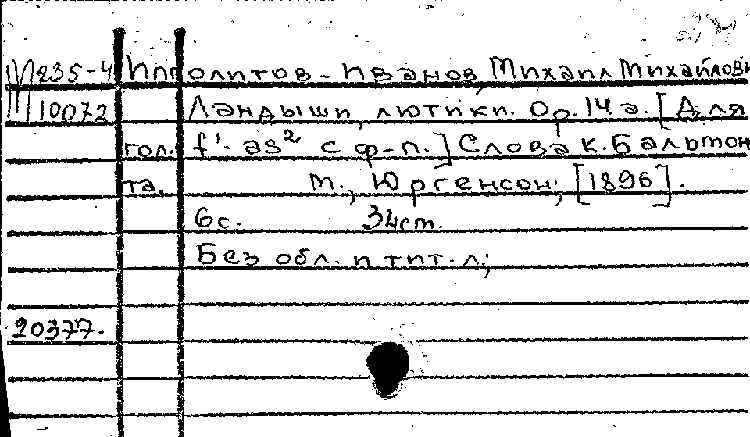 М235-4 Ипполитов-Иванов, Михаил Михайлови
М10072 Ландыши, лютики. Ор.14 а. [Для
гол. f¹-as² с ф-п.] Слова К.Бальмон
та. М., Юргенсон, [1896].
6с. 34см.
Без обл. и тит. л.;
20377.